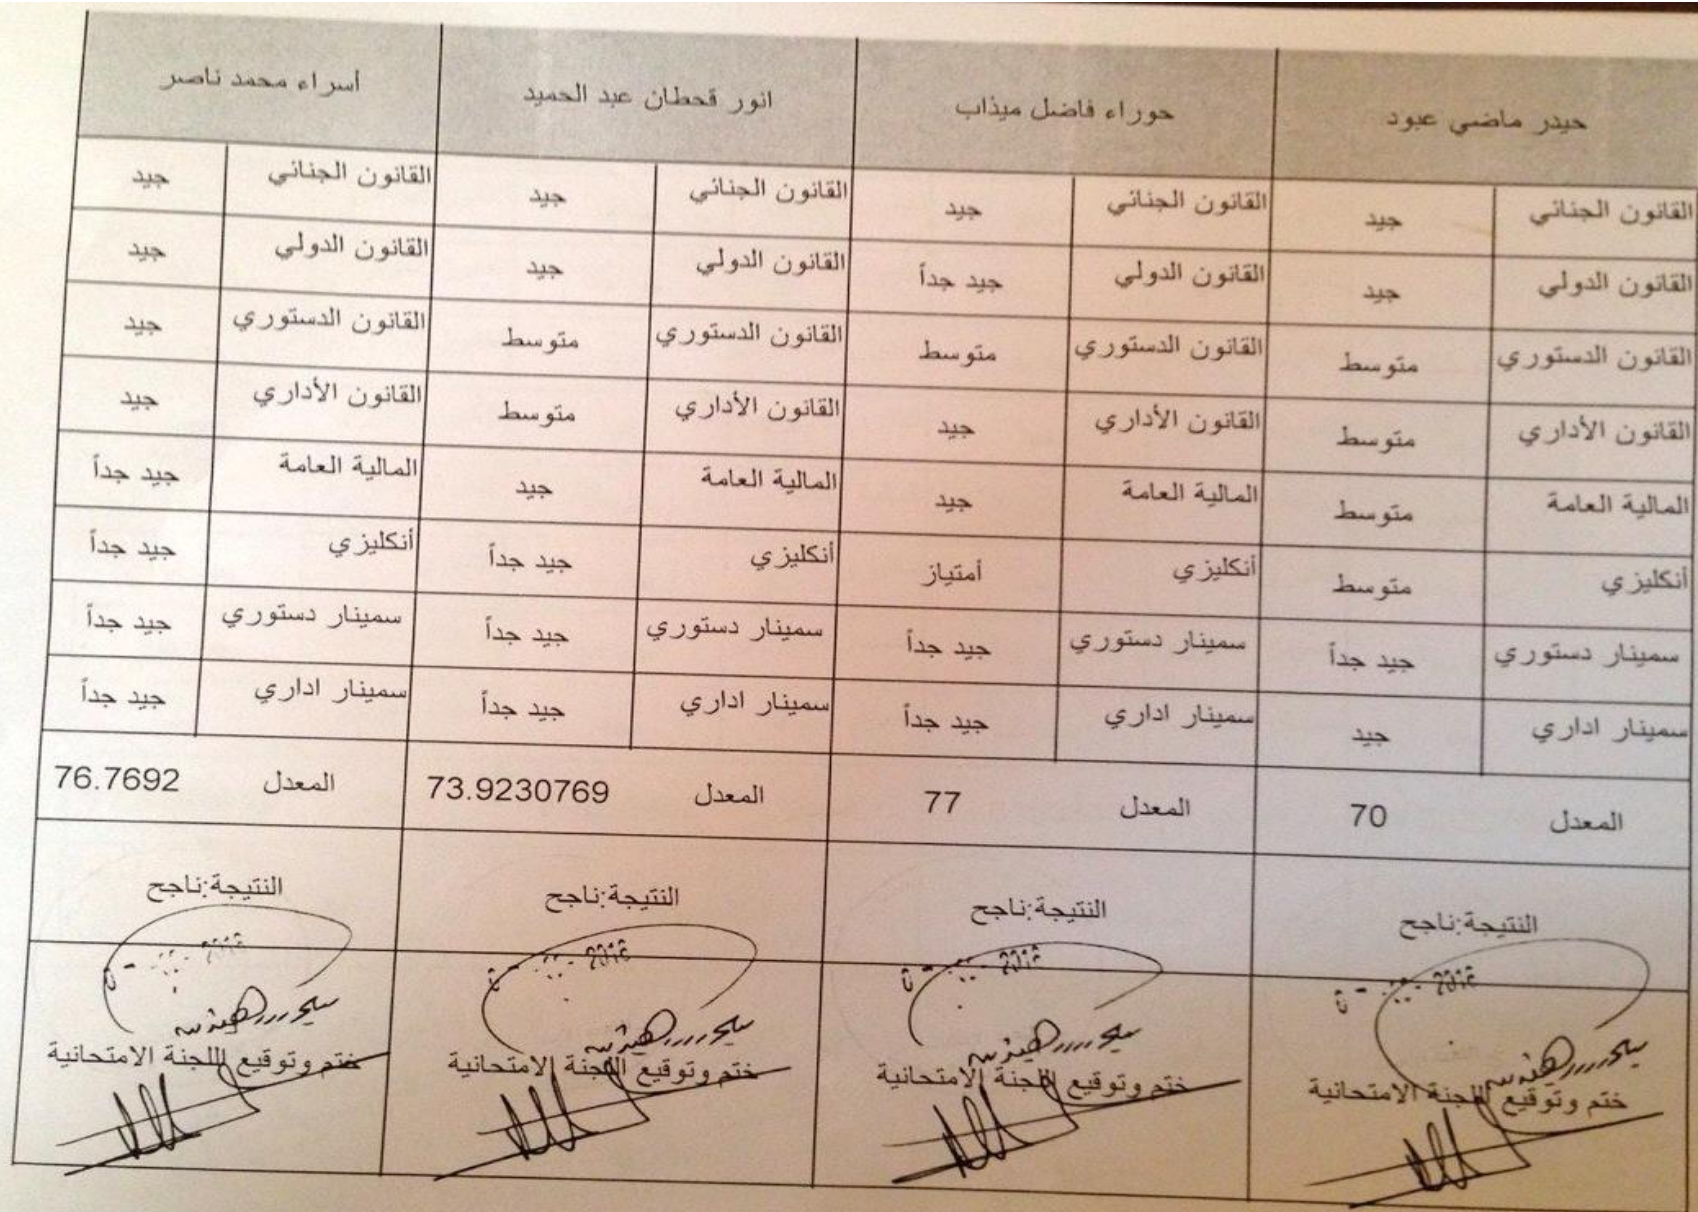 حيدر ماضي عبود
القانون الجنائي جيد
القانون الدولي جيد
القانون الدستوري متوسط
القانون الأداري متوسط
المالية العامة متوسط
أنكليزي متوسط
سمينار دستوري جيد جداً
سمينار اداري جيد
المعدل 70
النتيجة:ناجح
ختم وتوقيع اللجنة الامتحانية
حوراء فاضل ميذاب
القانون الجنائي جيد
القانون الدولي جيد جداً
القانون الدستوري متوسط
القانون الأداري جيد
المالية العامة جيد
أنكليزي أمتياز
سمينار دستوري جيد جداً
سمينار اداري جيد جداً
المعدل 77
النتيجة:ناجح
ختم وتوقيع اللجنة الامتحانية
انور قحطان عبد الحميد
القانون الجنائي جيد
القانون الدولي جيد
القانون الدستوري متوسط
القانون الأداري متوسط
المالية العامة جيد
أنكليزي جيد جداً
سمينار دستوري جيد جداً
سمينار اداري جيد جداً
المعدل 73.9230769
النتيجة:ناجح
ختم وتوقيع اللجنة الامتحانية
أسراء محمد ناصر
القانون الجنائي جيد
القانون الدولي جيد
القانون الدستوري جيد
القانون الأداري جيد
المالية العامة جيد جداً
أنكليزي جيد جداً
سمينار دستوري جيد جداً
سمينار اداري جيد جداً
المعدل 76.7692
النتيجة:ناجح
ختم وتوقيع اللجنة الامتحانية